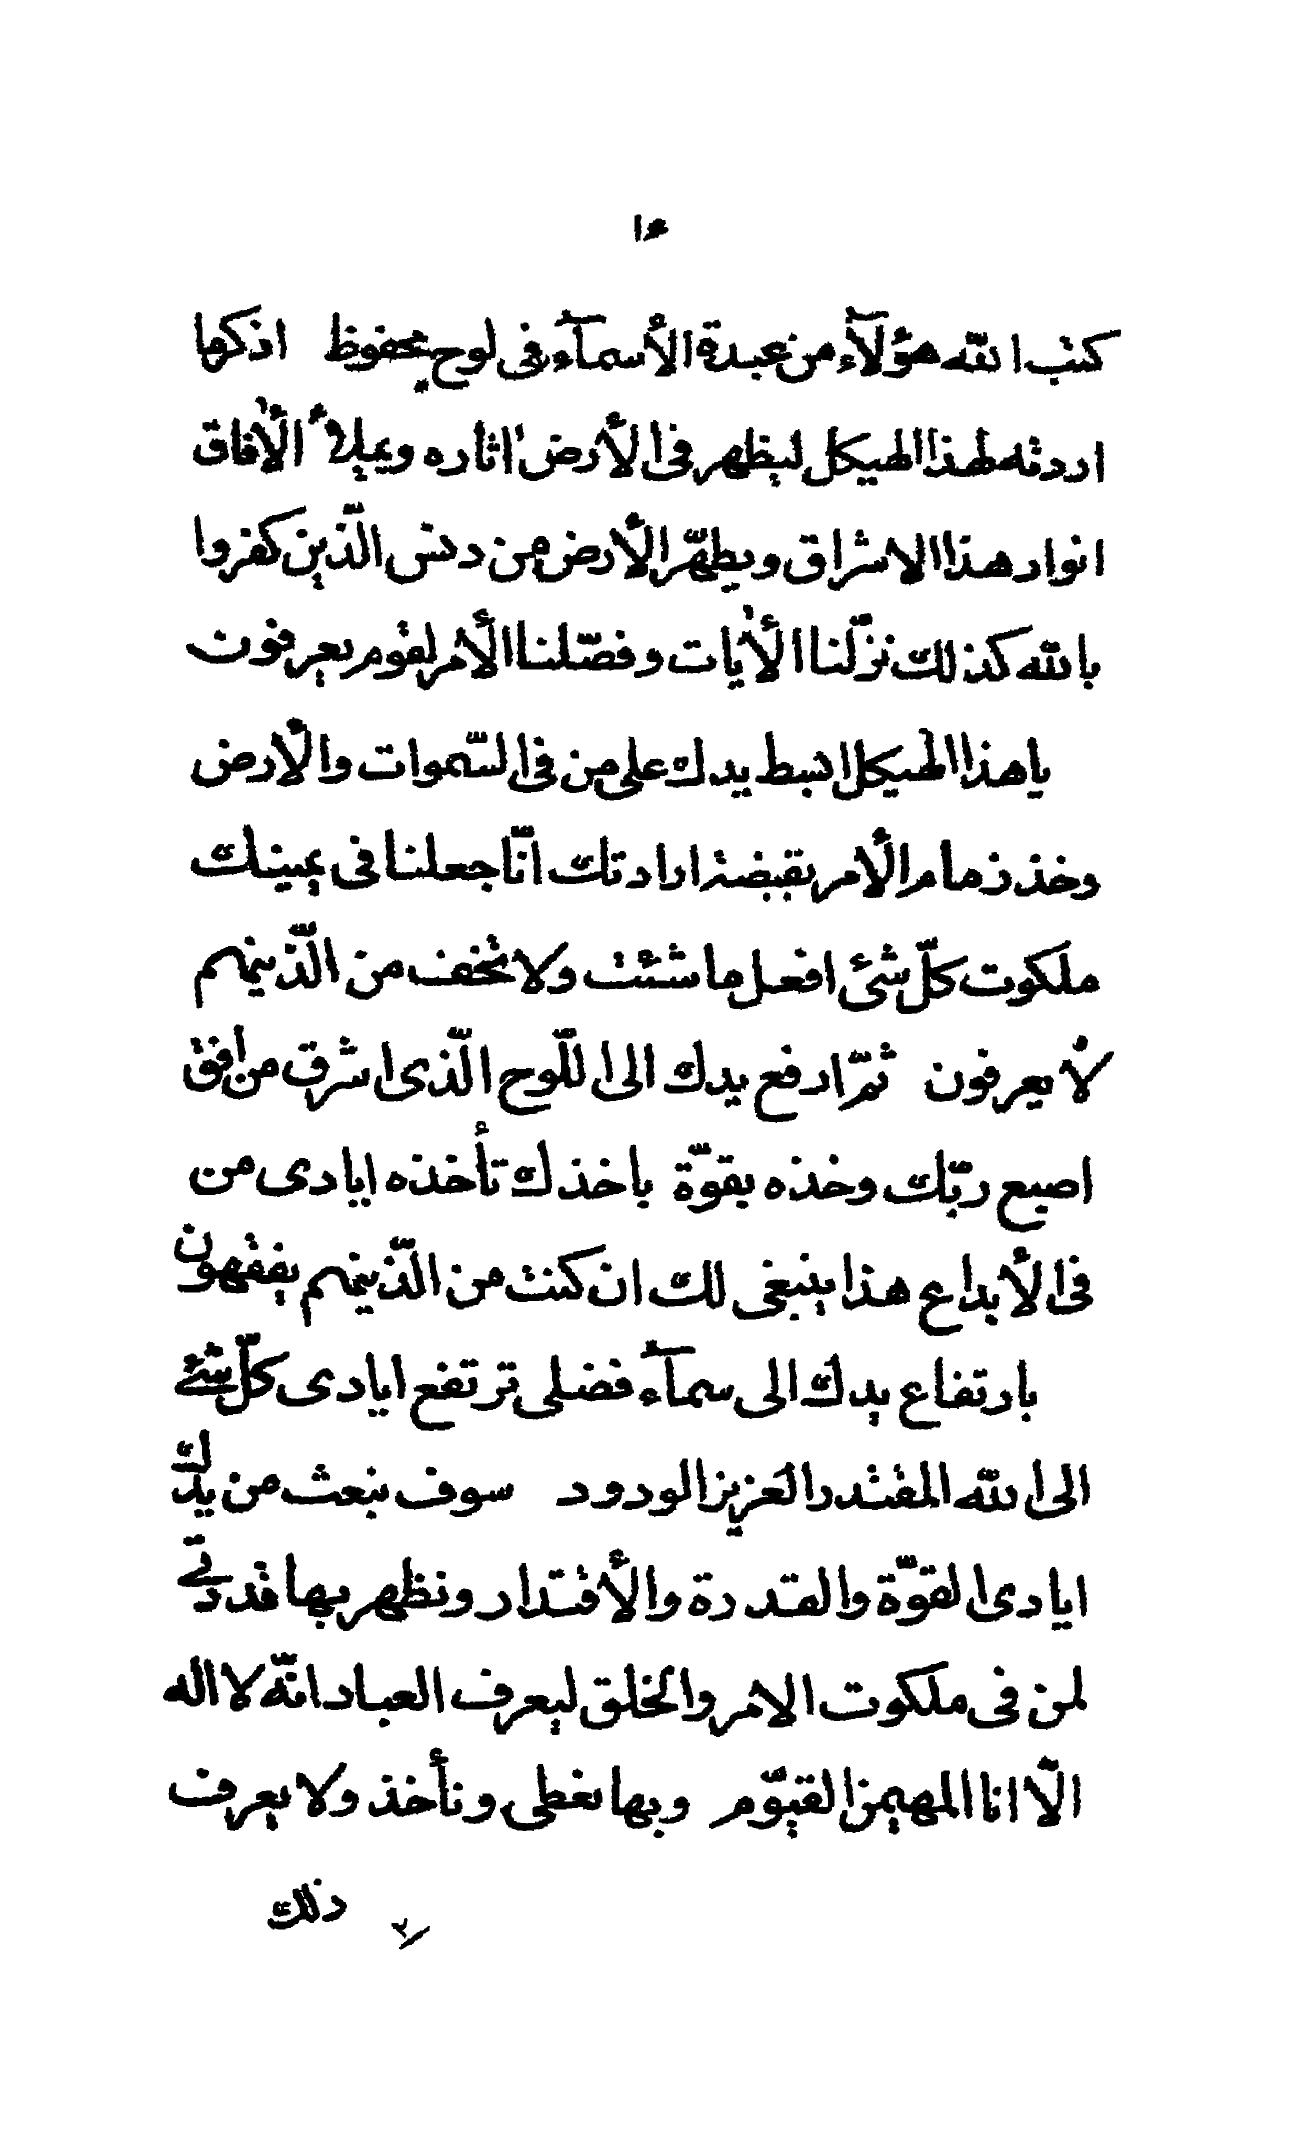 ١٥
كتب الله هؤلآء من عبدة الأسمآء فى لوح محفوظ اذكها
اردته لهذا الهيكل ليظهر فى الأرض اثاره ويملأ الأفاق
انوار هذا الاشراق ويطهّر الأرض من دنس الّذين كفروا
بالله كذلك نزّلنا الأيات وفصّلنا الأمر لقوم يعرفون
ياهذا الهيكل ابسط يدك على من فى السّموات والأرض
وخذ زمام الأمر بقبضة ارادتك انّا جعلنا فى يمينك
ملكوت كلّ شئ افعل ما شئت ولا تخف من الّذينهم
لا يعرفون ثمّ ارفع يدك الى اللّوح الّذى اشرق من افق
اصبع ربّك وخذه بقوّة ياخذك تأخذه ايادى من
فى الأبداع هذا ينبغى لك ان كنت من الّذينهم يفقهون
بارتفاع يدك الى سمآء فضلى ترتفع ايادى كلّ شئ
الى الله المقتدر العزيز الودود سوف نبعث من يدك
ايادى القوّة والقدرة والأقتدار ونظهر بها قدرتى
لمن فى ملكوت الامر والخلق ليعرف العباد انّه لا اله
الّا انا المهيمن القيّوم وبها نعطى ونأخذ ولا يعرف
ذلك
٢